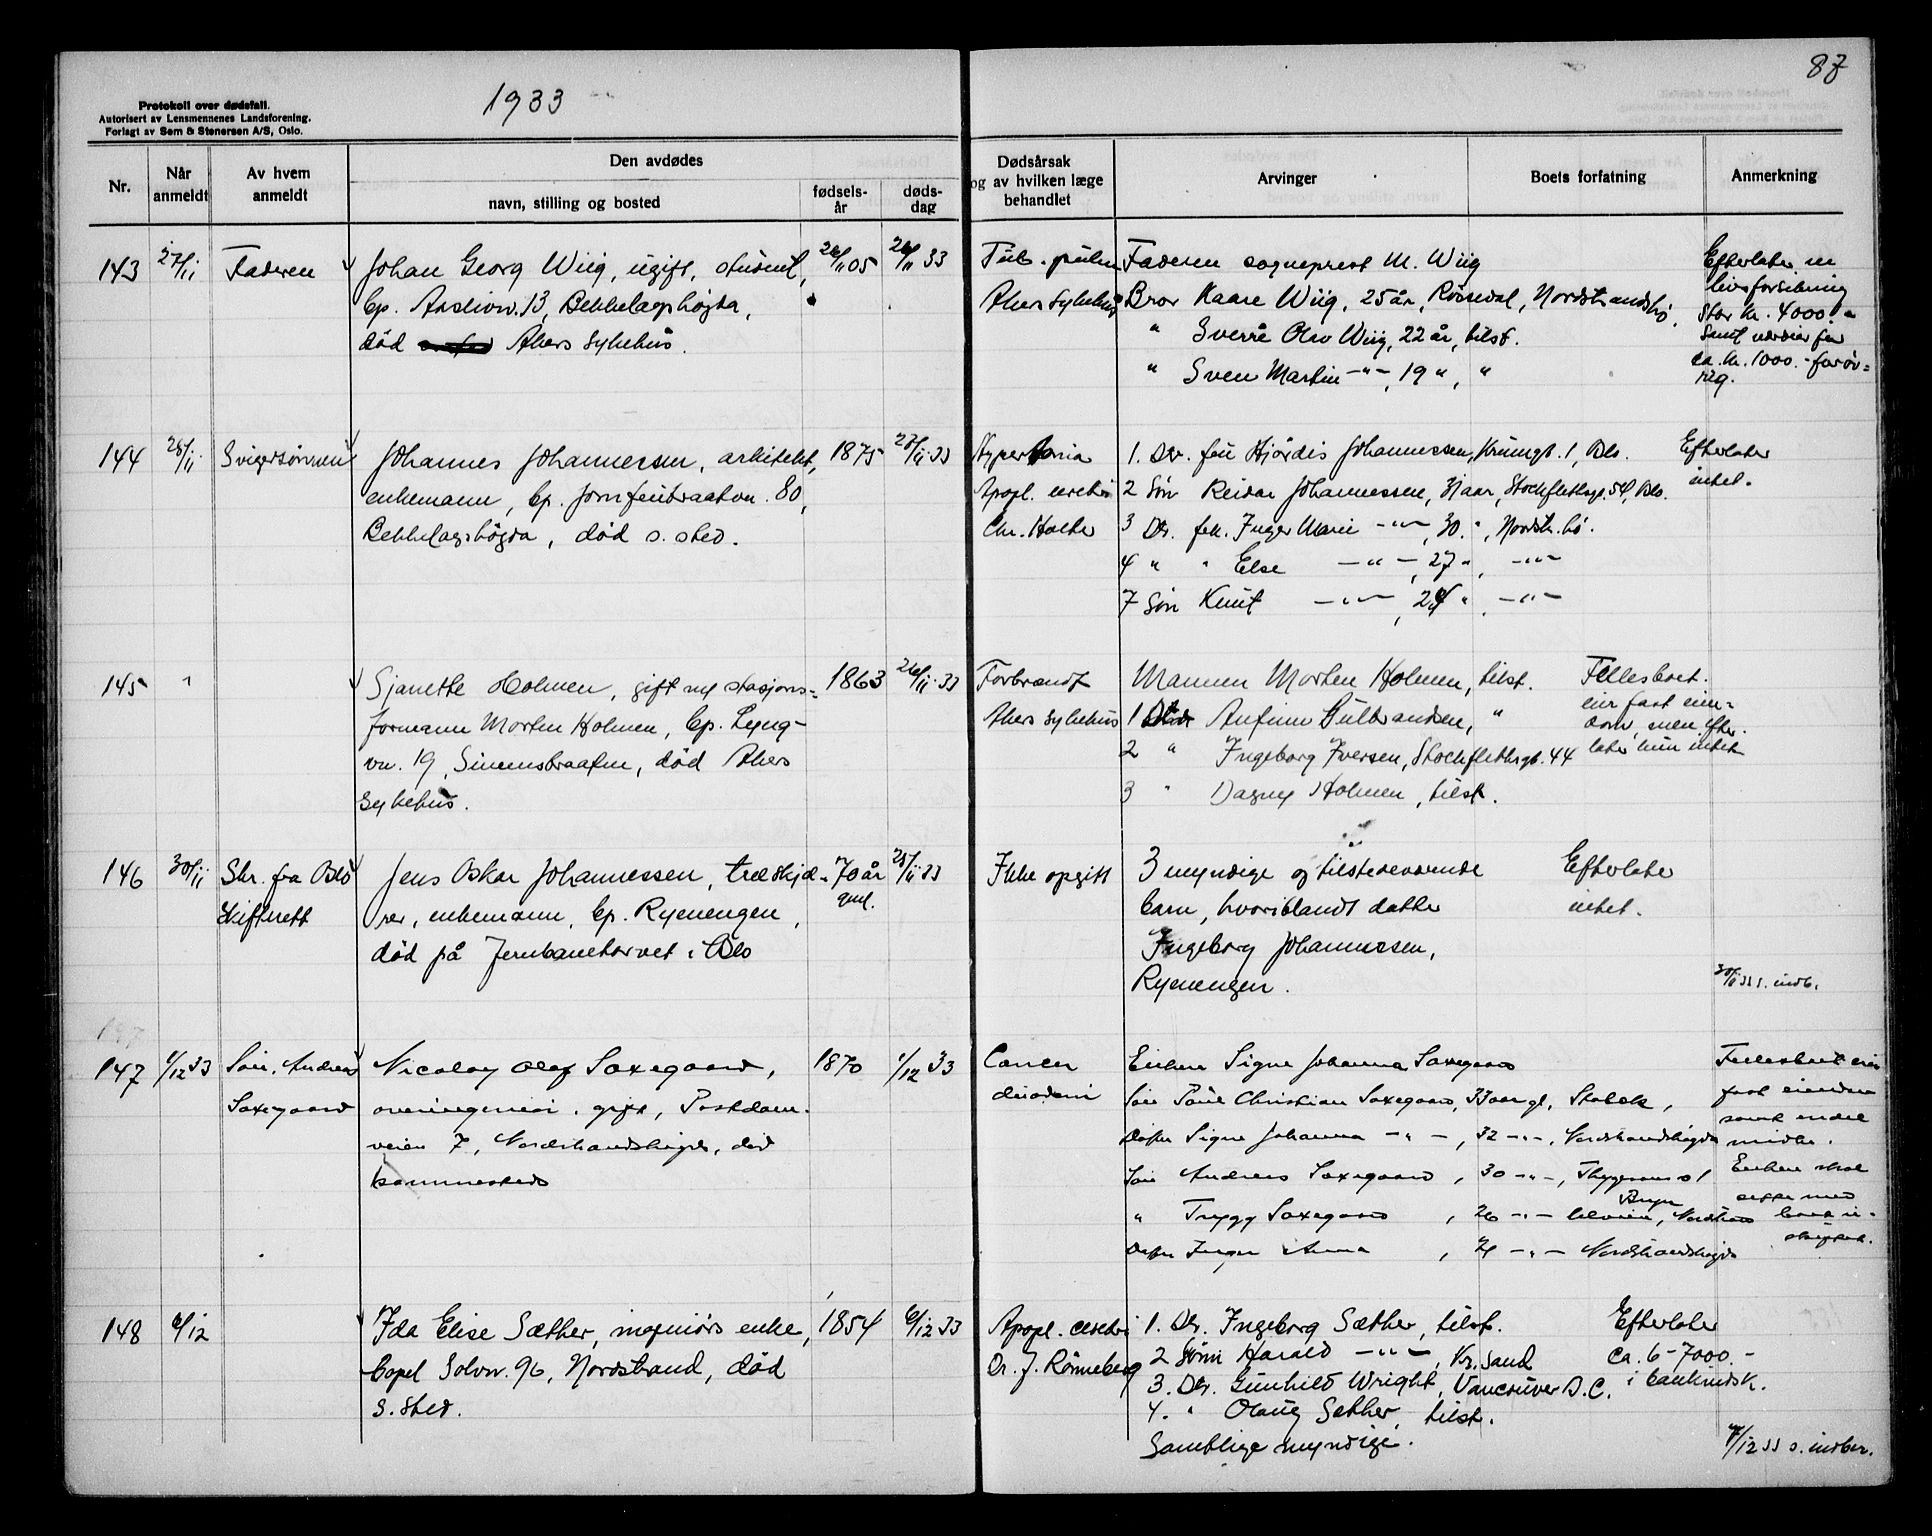 1933
87
Protokoll over dødsfall.
Autorisert av Lensmennenes Landsforening.
Forlagt av Sem & Stenersen A/S, Oslo.
Nr.
Når anmeldt
Av hvem anmeldt
Den avdødes
navn, stilling og bosted
fødsels-år
døds-dag
Dødsårsak og av hvilken læge behandlet
Arvinger
Boets forfatning
Anmerkning
143 27/11 Faderen
Johan Georg Wiig, ugift, student,
bp. 13, Bekkelagshøgda,
død Akers sykehus.
26/11 05
26/11 33
Tub. pulm
Akers sykehus
Faderen sogneprest M. Wiig
Bror Kaare Wiig, 25 år, Nordstrandshö.
" Sverre Olav Wiig, 22 år, tilst.
" Sven Martin -"-, 19 ", "
Efterlater en
livsforsikring
stor kr. 4000.-
samt verdier for
ca. kr. 1000.- forøv=
rig.
144 28/11 Svigersønnen
Johannes Johannessen, arkitekt,
enkemann, bp. 80,
Bekkelagshøgda, død s. sted.
1875
27/11 33
Hypertonia
Apopl. cerebri
Chr. Holter
1. Dtr. fru Hjördis Johannessen, 1, Oslo.
2 Søn Reidar Johannessen, 31 aar, Stockflethsgt. 54, Oslo.
3 Dtr. frk. Inger Marie -"-, 30 ", Nordstr.hö.
4 " " Else -"-, 27 ", -"-
7 Søn Knut -"-, 24 ", -"-
Efterlater
intet.
145 "
Sjanette Holmen, gift m/ stasjons=
formann Morten Holmen, bp. Lyng-
vn. 19, Simensbraaten, død Akers
sykehus.
1863
26/11 33
Forbrandt
Akers sykehus
Mannen Morten Holmen, tilst.
1 Gulbrandsen, "
2 " Ingeborg Iversen, Stockflethsgt. 44
3 " Dagny Holmen, tilst.
Fellesboet.
eier fast eien=
dom, men efter-
later hun intet
146 30/11 Skr. fra Oslo
skifterett
Jens Oskar Johannessen, træskjæ-
rer, enkemann, bp. Ryenengen,
død på Jernbanetorvet i Oslo
70 år
gml.
28/11 33
Ikke opgitt
3 myndige og tilstedeværende
barn, hvoriblandt datter
Ingeborg Johannessen,
Ryenengen.
Efterlater
intet.
30/11 33 s. indb.
147 1/12 33 Søn, Andreas
Saxegaard
Nicolay Olaf Saxegaard,
overingeniør, gift, Postdam-
veien 7, Nordstrandshögda, död
sammesteds
1870
1/12 33
Cancer
duodeni
Enken Signe Johanna Saxegaard
Søn Paul Christian Saxegaard, 33 aar gl., Stabek,
Datter Signe Johanna -"-, 32 -"-, Nordstrandshögda
Søn Andreas Saxegaard, 30 -"-,
Bryn
" Trygg Saxegaard, 26 -"-
Datter Inger Anna, 21 -"- Nordstrandshögda
Fellesboet eier
fast eiendom
samt endel
midler.
Enken skal
sitte med
boet u-
skiftet.
148 6/12
Ida Elise Sæther, ingeniørs enke,
bopel Solvn. 96, Nordstrand, död
s. sted.
1854
6/12 33
Apopl. cerebri
Dr. J. Rönneberg
1. Dtr. Ingeborg Sæther, tilst.
2 Sönn Harald -"-, Kr. sand
3. Dtr. Gunhild Wright, Vancouver B.C.
4. " Olaug Sæther, tilst.
Samtlige myndige.
Efterlater
ca. 6-7000.-
i bankinnsk.
7/12 33 s. indber.